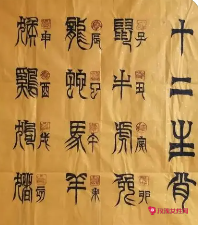 十二生肖
鼠子
牛丑
虎寅
兔卯
龍辰
蛇巳
馬午
羊未
猴申
雞酉
狗戌
猪亥